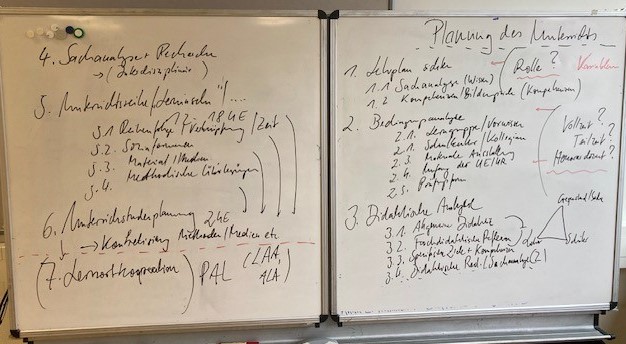 Planung des Unterrichts
1. Lehrplan
1.1 Sachanalyse (Wissen)
1.2 Kompetenzen/Bildungsziele (Kompetenzen)
Rolle?
2. Bedingungsanalyse
2.1. Lerngruppe/Vorwissen
2.1. Kollegium
2.3. Materiale Ausstattung
2.4. Umfang der UE/UR
2.5. Prüfungsform
Vollzeit?
Teilzeit?
Honorardozent?
3. Didaktische Analyse
3.1. Allgemeine Didaktik
3.2. Fachdidaktische
3.3.
3.4. Didaktische Red. (Sachanalyse
Gegenstand/
Lehrer
Schüler
4. Sachanalyse + Recherche
→ (Interdisziplinär)
5. Unterrichtsreihe/
18 UE
5.1 Reihenfolge/Verknüpfung/Zeit
5.2. Sozialformen
5.3. Material/Medien
5.4. Methodische Überlegungen
6. Unterrichtsstundenplanung
2 UE
→ Konkretisierung Methoden/Medien etc.
(7. Lernortkooperation) PAL (LAA,
ALA)